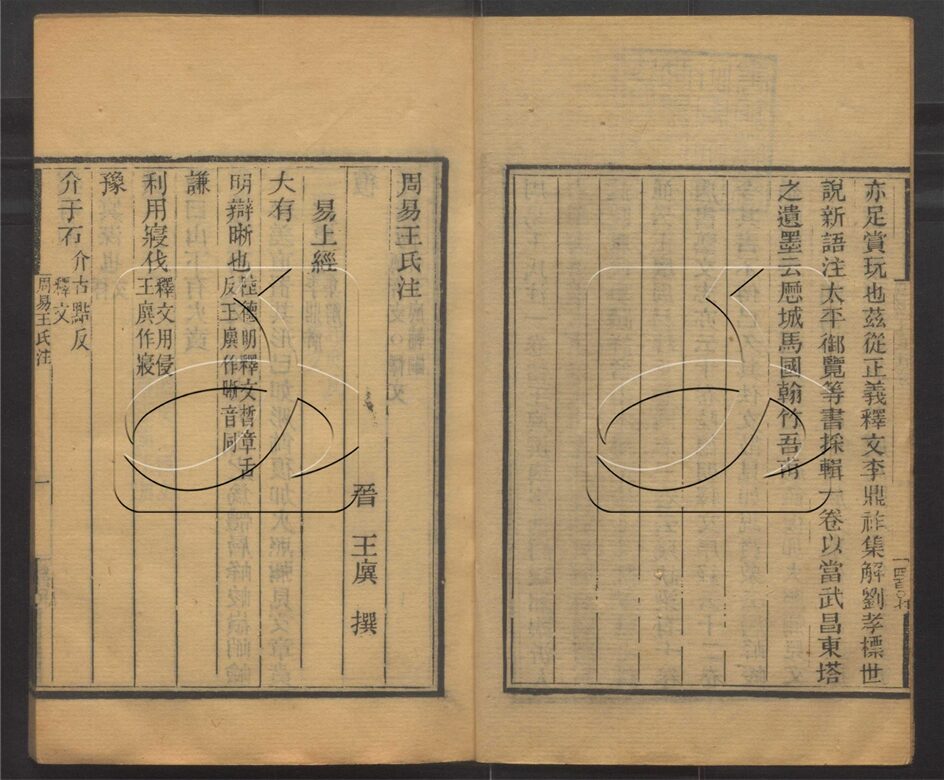 亦足賞玩也茲從正義釋文李鼎祚集解劉孝標世
說新語注太平御覽等書採輯一卷以當武昌東塔
之遺墨云厯城馬國翰竹吾甫
周易王氏注
晉 王廙 撰
易上經
大有
明辯晣也陸德明釋文晢章舌
反王廙作晣音同
謙
利用寑伐釋文用侵
王廙作寑
豫
介于石介古點反
釋文
周易王氏注
一